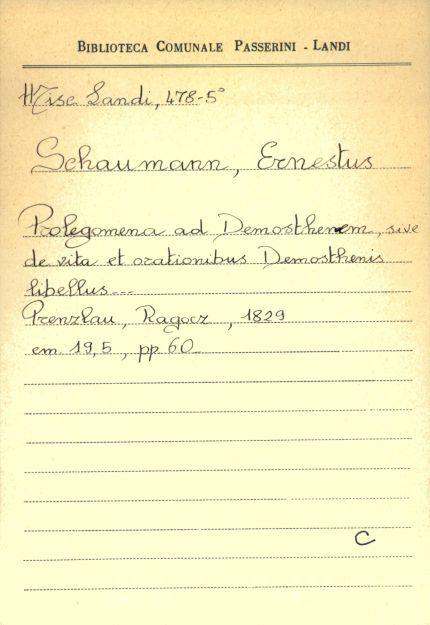 BIBLIOTECA COMUNALE PASSERINI - LANDI
Misc Landi, 478-5°
Schaumann, Ernestus
Prolegomena ad Demosthenem, sive
de vita et orationibus Demosthenis
libellus...
Prenzlau, Ragocz, 1829
cm 19,5, pp 60
C